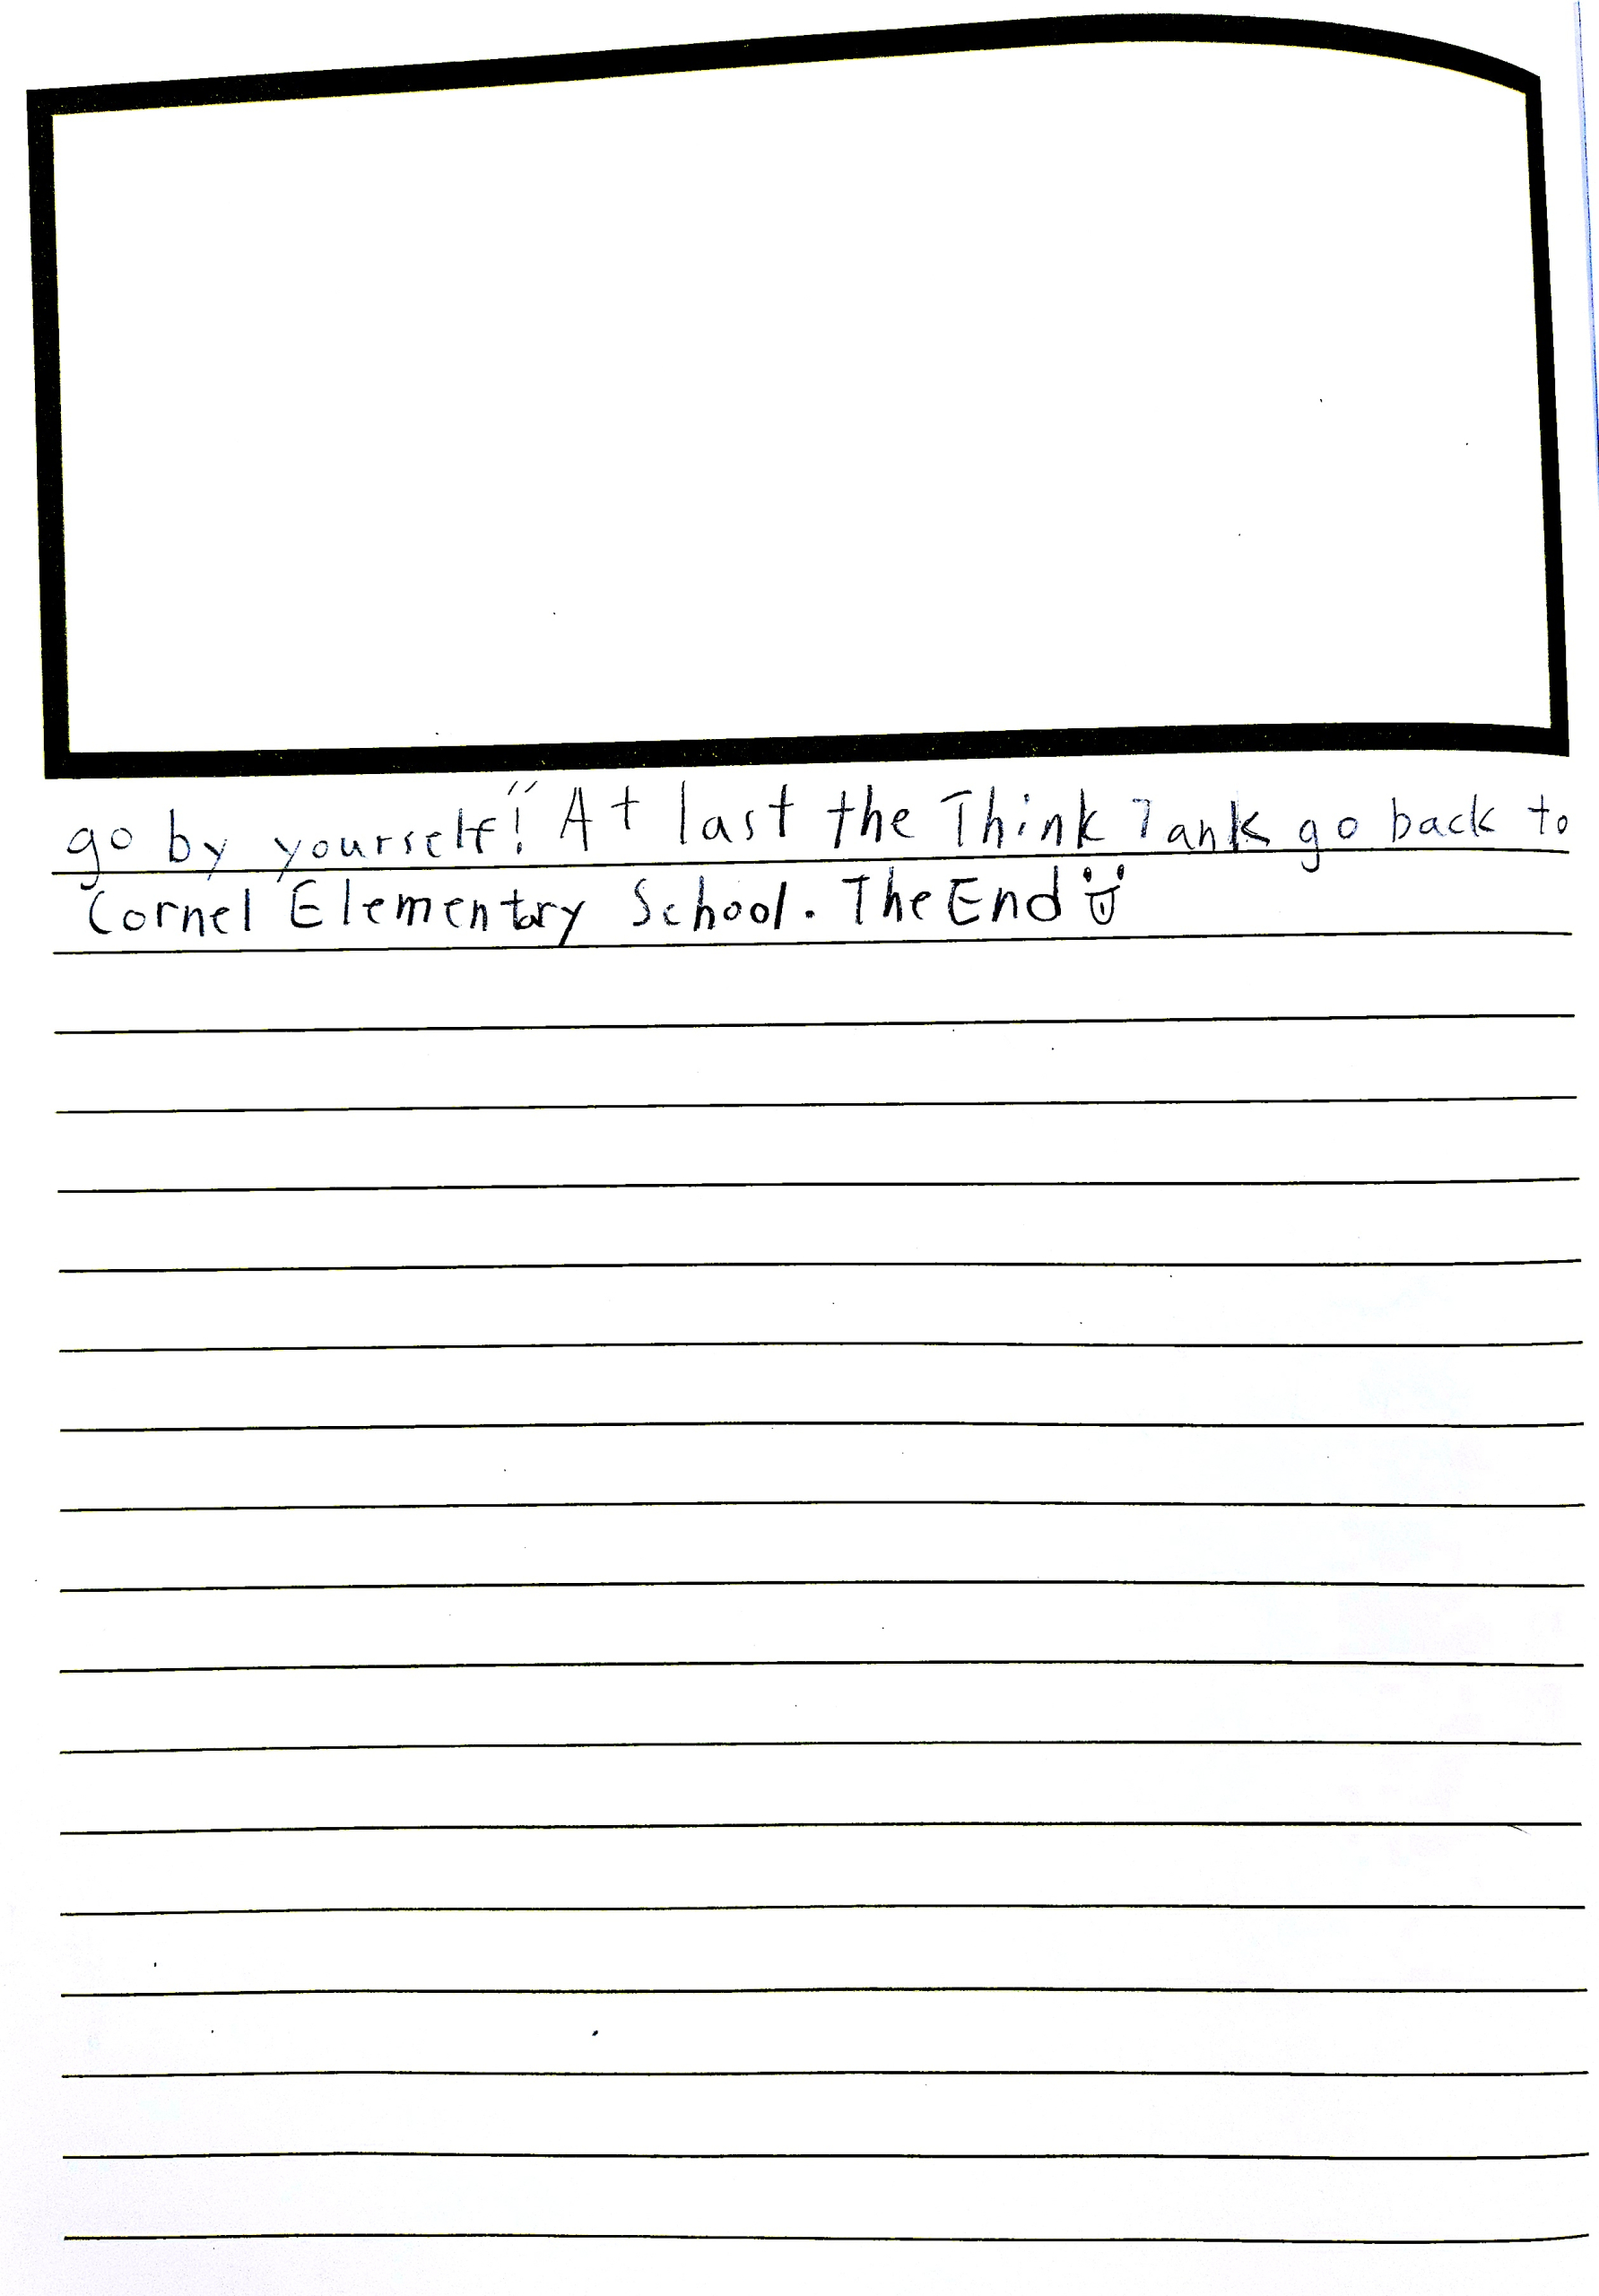 go by yourself!" At last the Think Tank go back to
Cornel Elementary School. The End